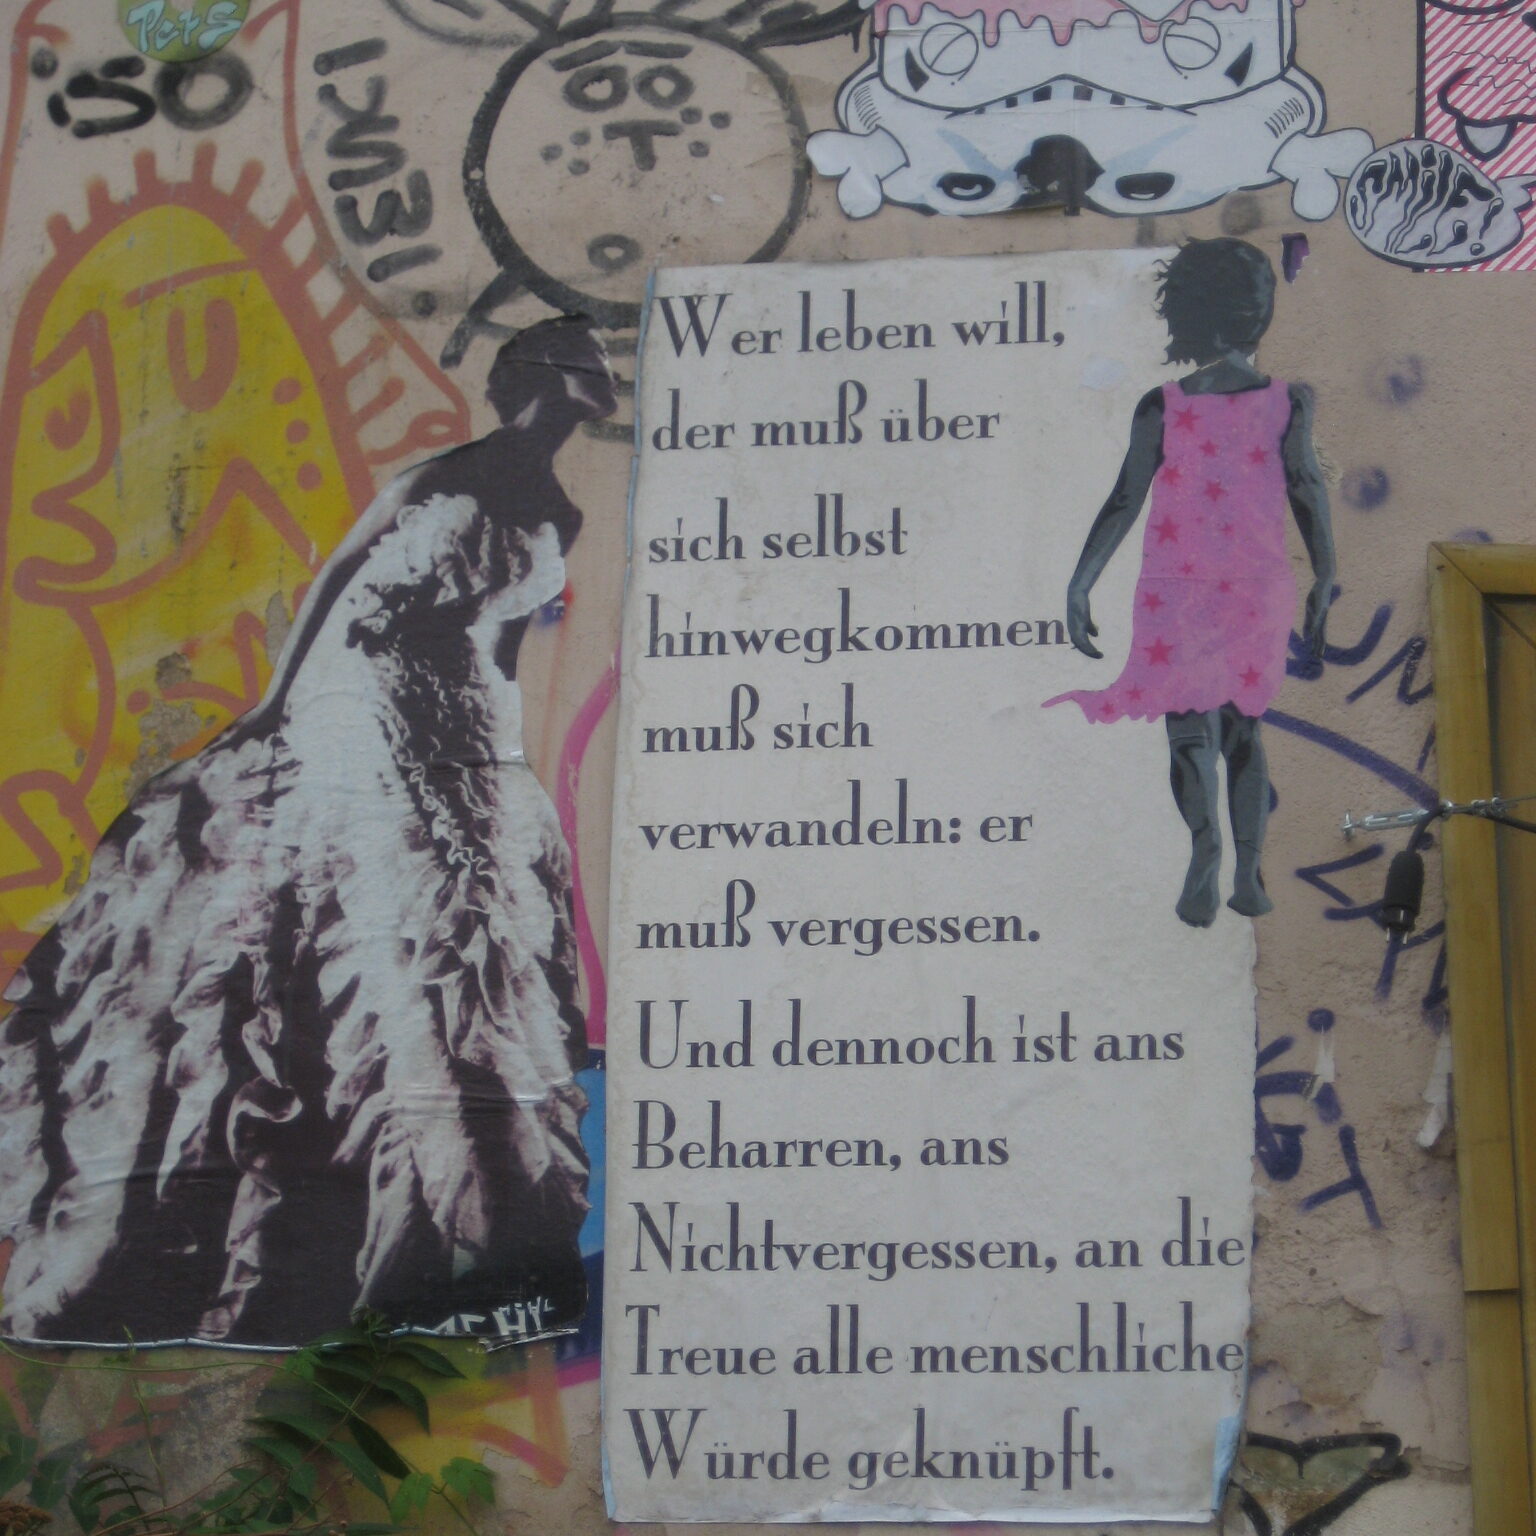 Pets
SO
Wer leben will,
der muß über
sich selbst
hinwegkommen,
muß sich
verwandeln: er
muß vergessen.
Und dennoch ist ans
Beharren, ans
Nichtvergessen, an die
Treue alle menschliche
Würde geknüpft.
SMILE!